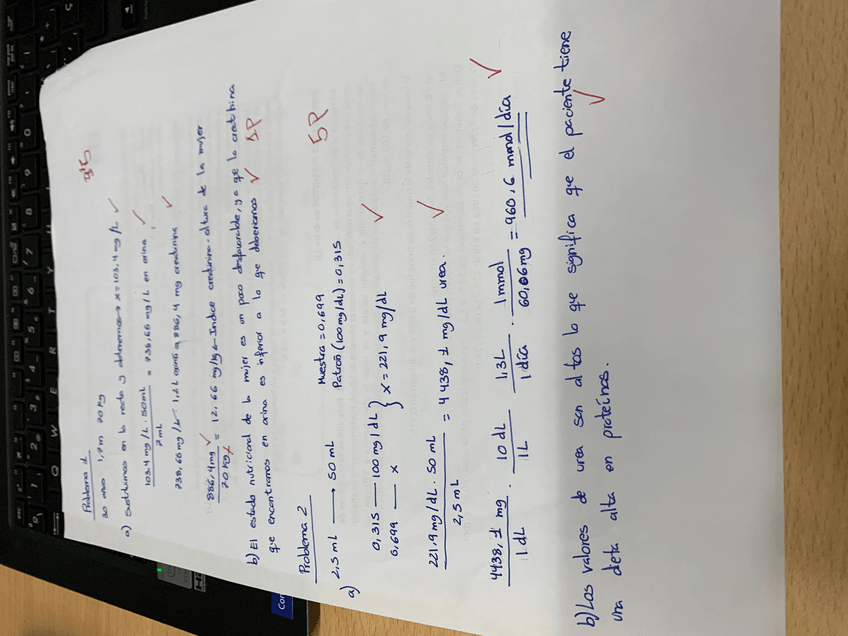 Problema 1
9'5
30 años 1,7m 70 kg
a) Sustituimos en la recta y obtenemos → x = 103,4 mg/L ✓
103,4 mg/L · 50mL / 7 mL = 738,66 mg/L en orina ✓
738,66 mg/L · 1,2L = 886,4 mg creatinina ✓
886,4mg / 70 kg = 12,66 mg/kg Indice creatinina-altura de la mujer
b) El estado nutricional de la mujer es un poco desfavorable, ya que la creatinina
que encontramos en orina es inferior a lo que deberíamos ✓
Problema 2
5P
2,5 mL → 50 mL Muestra = 0,699
Patrón (100 mg/dL) = 0,315
a)
0,315 — 100 mg/dL
0,699 — x } x = 221,9 mg/dL ✓
221,9 mg/dL · 50 mL / 2,5 mL = 4438,1 mg/dL urea. ✓
4438,1 mg / 1 dL · 10 dL / 1L · 1,3L / 1 día · 1mmol / 60,06mg = 960,6 mmol/día ✓
b) Los valores de urea son altos lo que significa que el paciente tiene
una dieta alta en proteínas. ✓
Q W E R T Y U